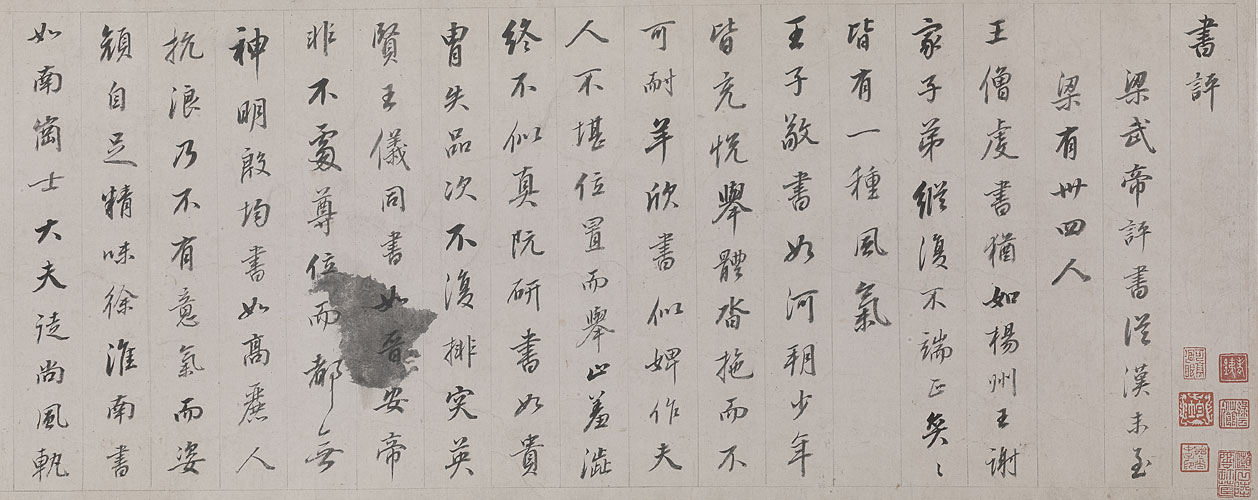 書評
梁武帝評書從漢末至
梁有卅四人
王僧虔書猶如楊州王謝
家子弟縱復不端正奕〻
皆有一種風氣
王子敬書如河朔少年
皆充悅舉體沓拖而不
可耐羊欣書似婢作夫
人不堪位置而舉止羞澀
終不似真阮研書如貴
胄失品次不復排突英
賢王儀同書如晉安帝
非不處尊位而都〻無
神明殷均書如高麗人
抗浪乃不有意氣而姿
顏自足精味徐淮南書
如南崗士大夫徒尚風軌